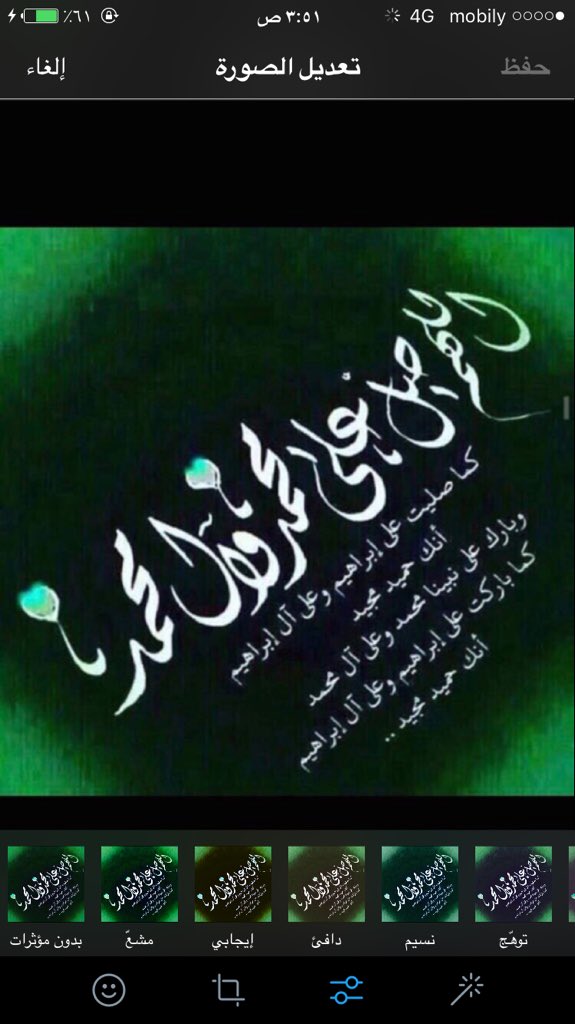 mobily 4G ٣:٥١ ص ٪٦١
إلغاء تعديل الصورة حفظ
اللهم صل على محمد وآل محمد
كما صليت على إبراهيم وعلى آل إبراهيم
أنك حميد مجيد
وبارك على نبينا محمد وعلى آل محمد
كما باركت على إبراهيم وعلى آل إبراهيم
أنك حميد مجيد ..
بدون مؤثرات مشعّ إيجابي دافئ نسيم توهّج